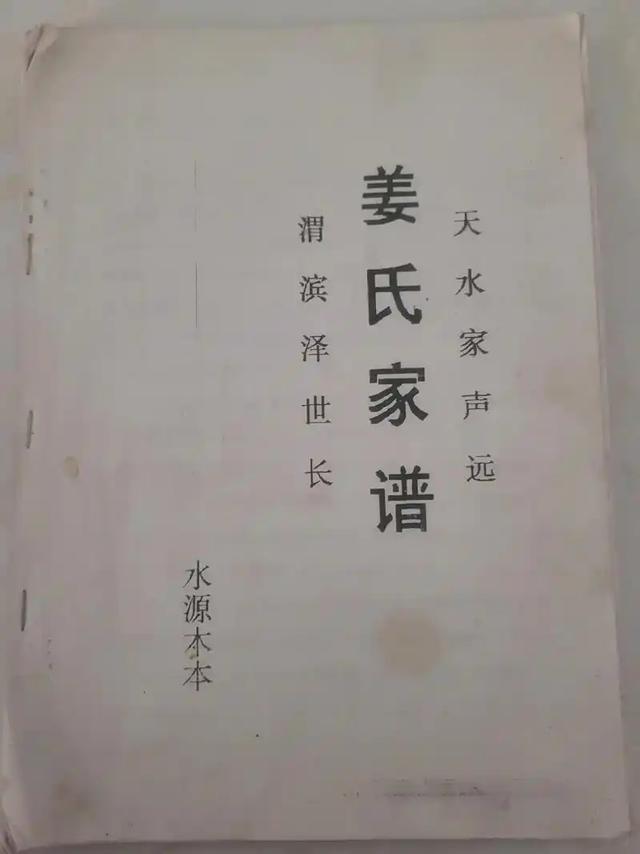 天水家声远
姜氏家谱
渭滨泽世长
水源木本